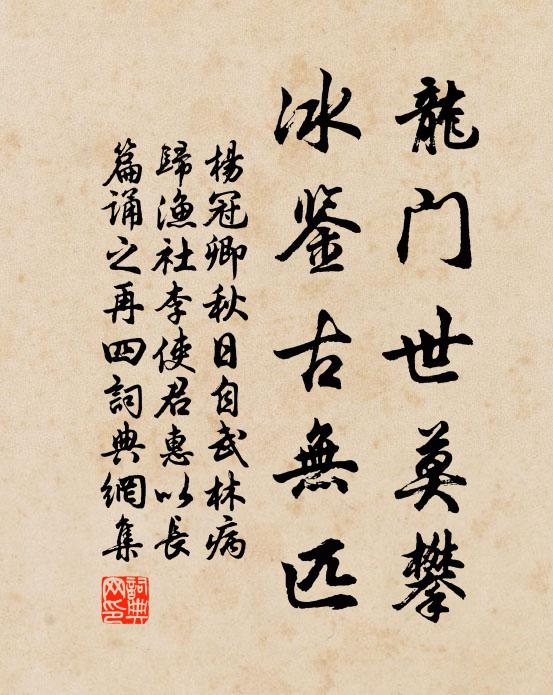 龍门世莫攀
冰鉴古無匹
楊冠卿秋日自武林病
歸漁社李使君惠以長
篇誦之再四詞典網集
詞典網印